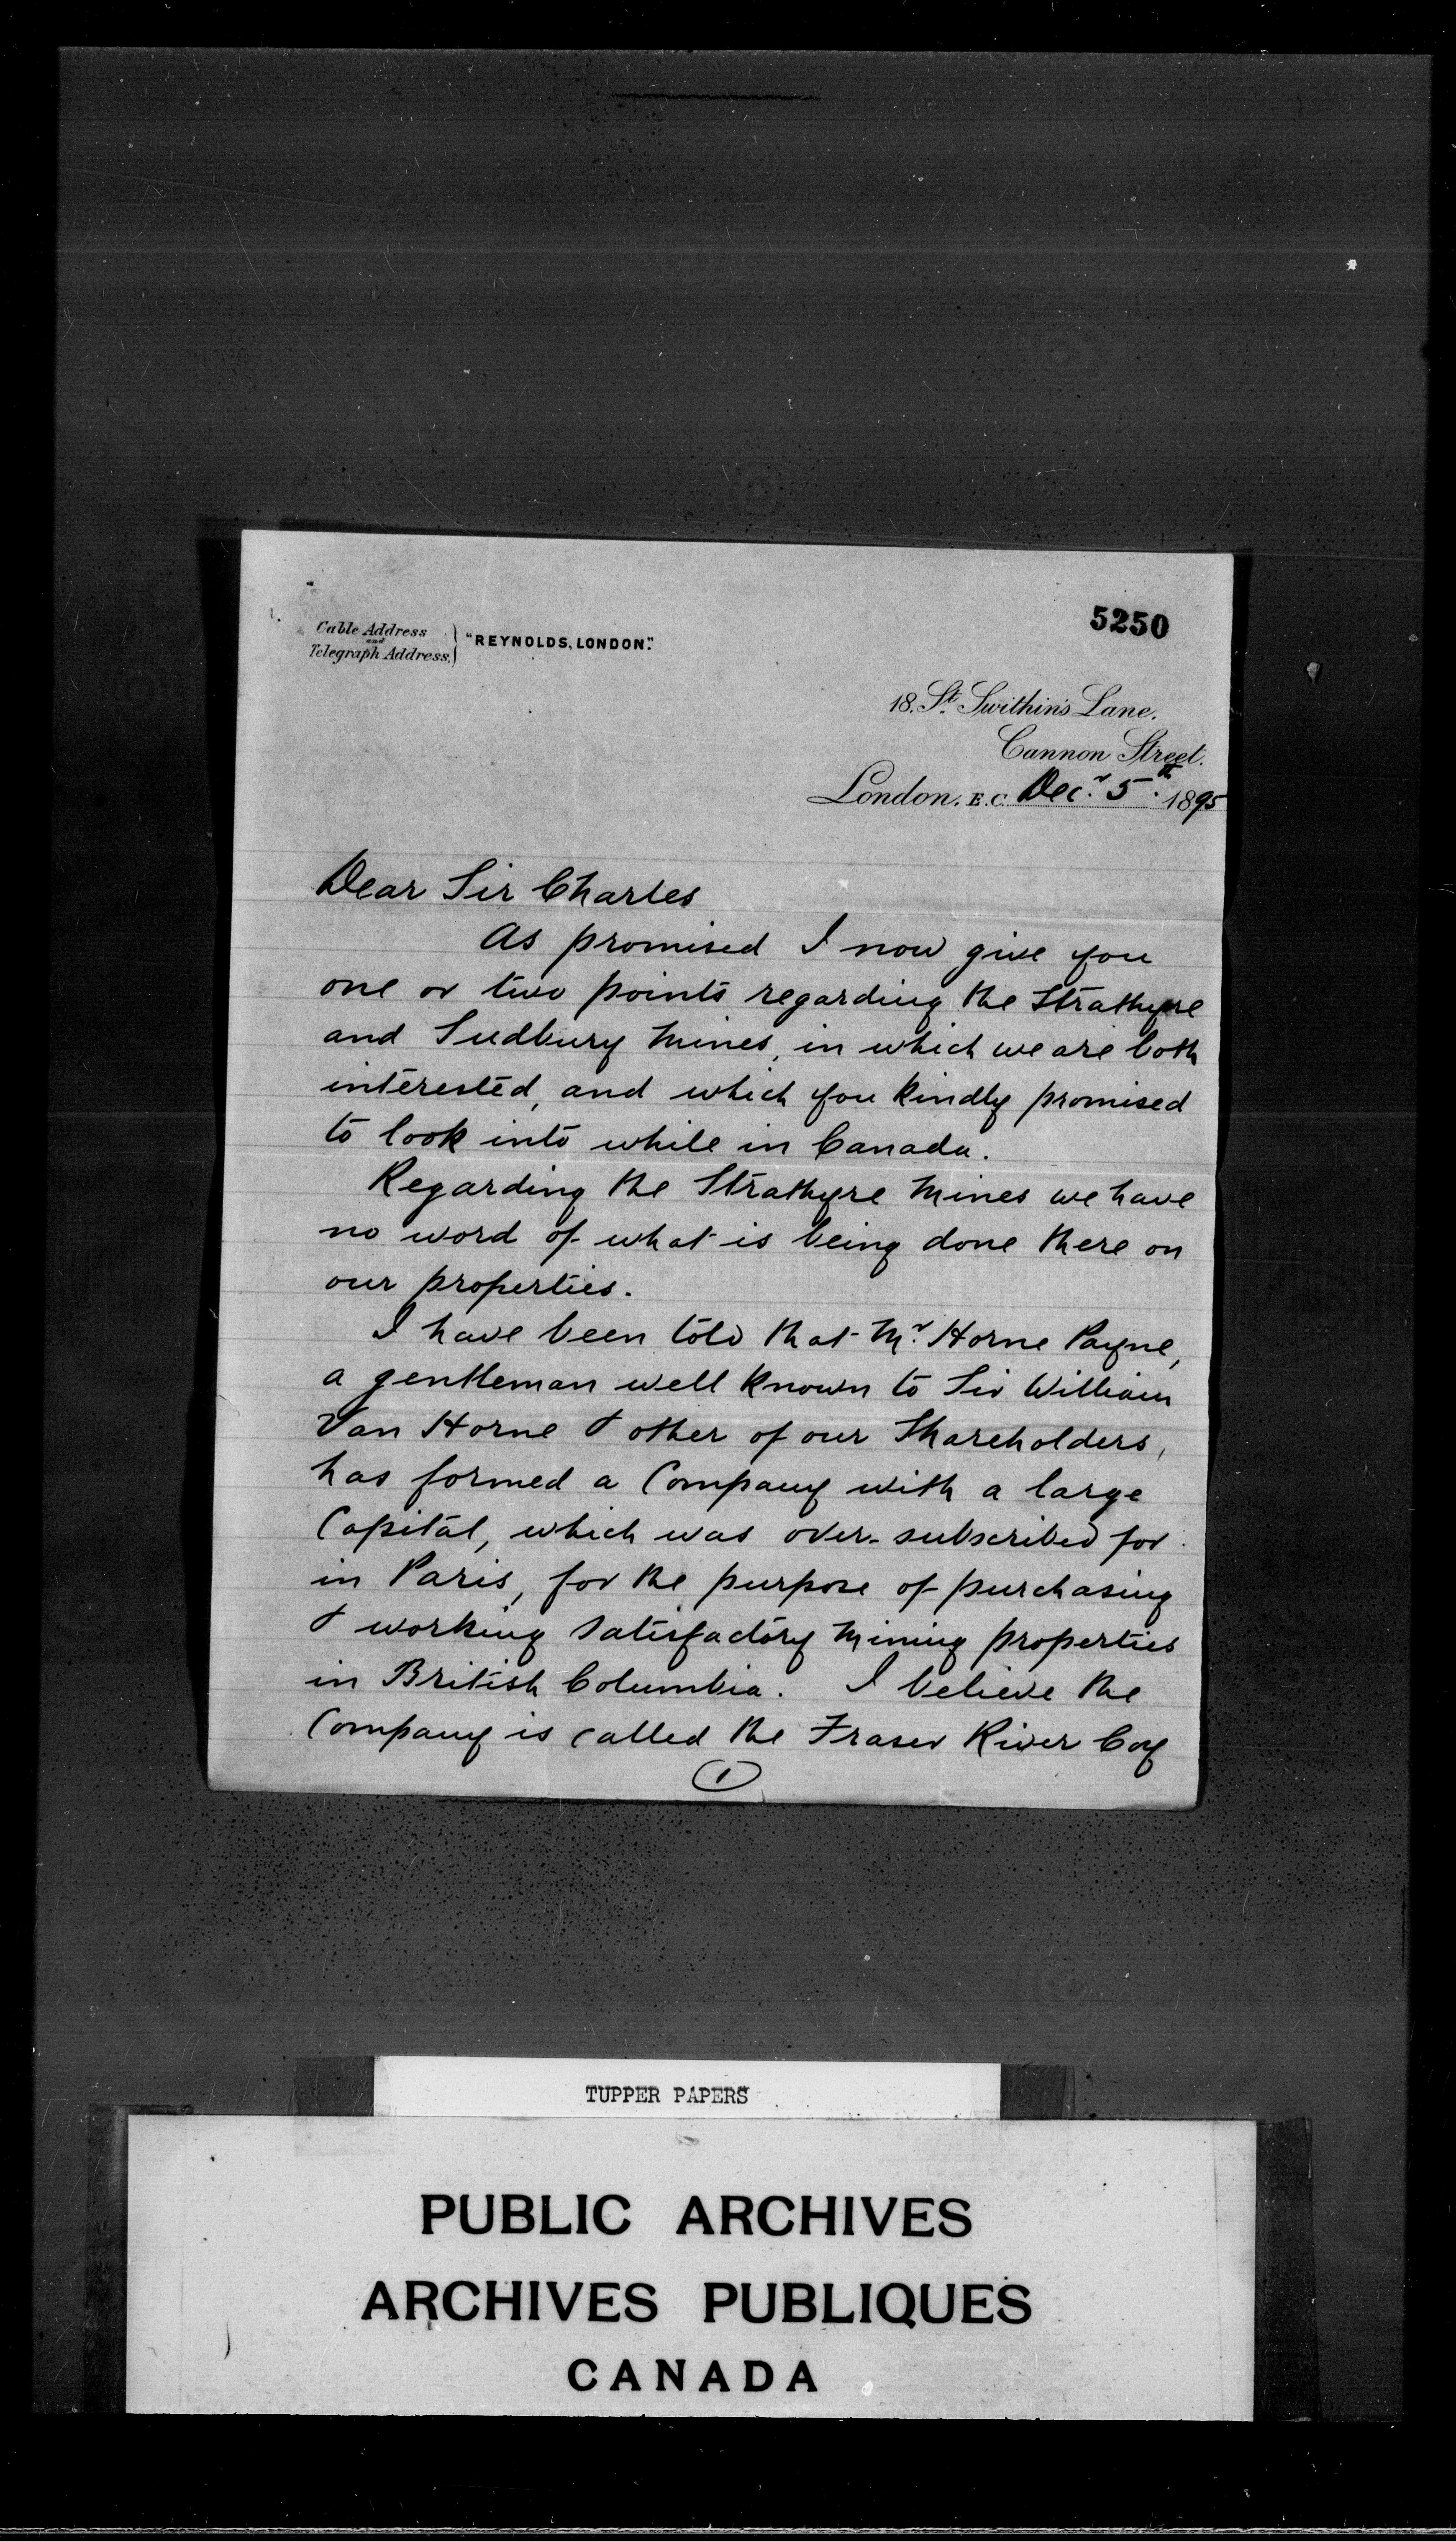 5250
Cable Address
and
Telegraph Address.
"REYNOLDS, LONDON".
18. St. Swithin's Lane,
Cannon Street.
London. E.C. Decr. 5th. 1895
Dear Sir Charles
As promised I now give you
one or two points regarding the Strathyre
and Sudbury Mines, in which we are both
interested, and which you kindly promised
to look into while in Canada.
Regarding the Strathyre Mines we have
no word of what is being done there on
our properties.
I have been told that Mr. Horne Payne,
a gentleman well known to Sir William
Van Horne & other of our Shareholders,
has formed a Company with a large
Capital, which was over-subscribed for
in Paris, for the purpose of purchasing
& working satisfactory Mining properties
in British Columbia. I believe the
Company is called the Fraser River Coy
1
TUPPER PAPERS
PUBLIC ARCHIVES
ARCHIVES PUBLIQUES
CANADA